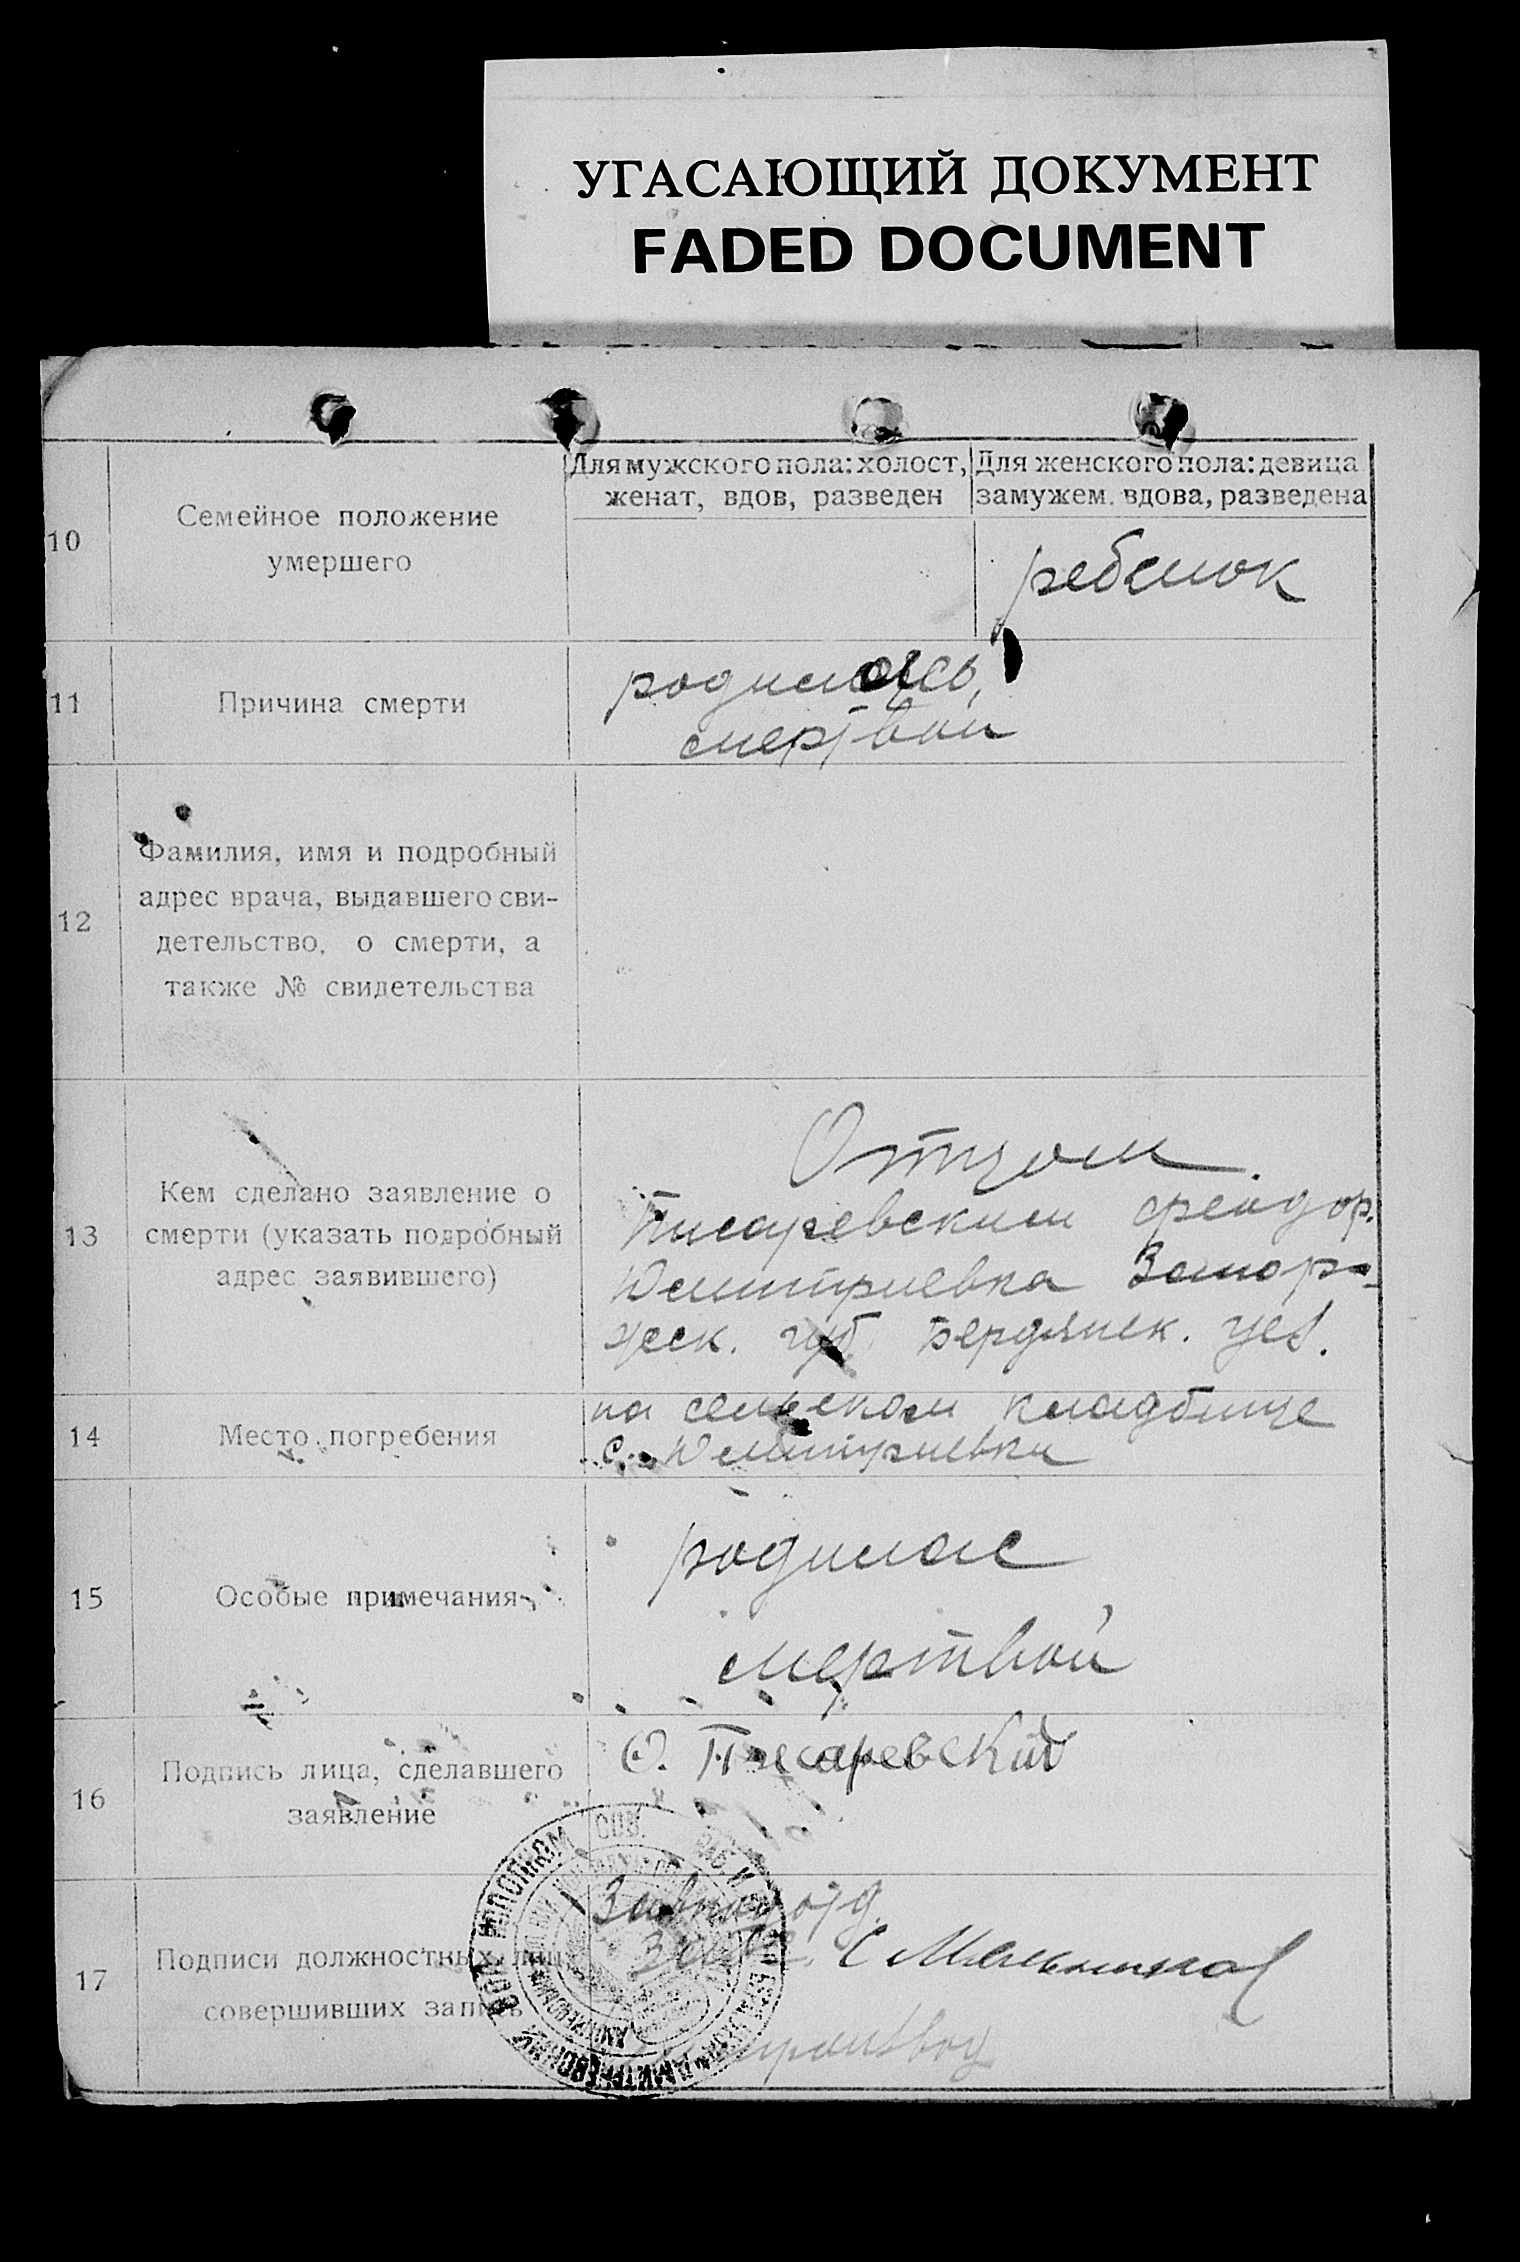 УГАСАЮЩИЙ ДОКУМЕНТ
FADED DOCUMENT
10
Семейное положение
умершего
Для мужского пола: холост,
женат, вдов, разведен
Для женского пола: девица
замужем. вдова, разведена
ребенок
11
Причина смерти
родилась,
мертвой
12
Фамилия, имя и подробный
адрес врача, выдавшего сви-
детельство, о смерти, а
также № свидетельства
13
Кем сделано заявление о
смерти (указать подробный
адрес заявившего)
Отцом.
Писаревским Феодор.
Дмитриевка Запор-
жеск. губ. Бердянск. уез.
14
Место погребения
на сельском кладбище
с. Дмитриевки
15
Особые примечания
родилас
мертвой
16
Подпись лица, сделавшего
заявление
Ѳ. Писаревский
17
Подписи должностных лиц,
совершивших запись
отд.
ВОЛ ИСПОЛКОМ СОВ. РАБ. И